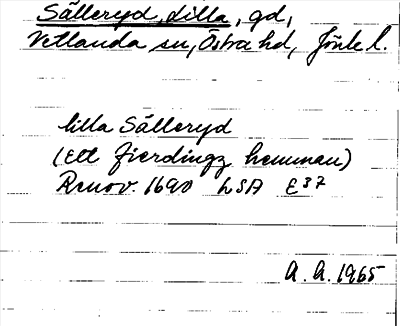 Sälleryd, Lilla, gd,
Vetlanda sn, Östra hd, Jönk l.
lilla Sälleryd
(Ett fierdingz hemman)
Renov. 1690 LSA E37
A. A. 1965